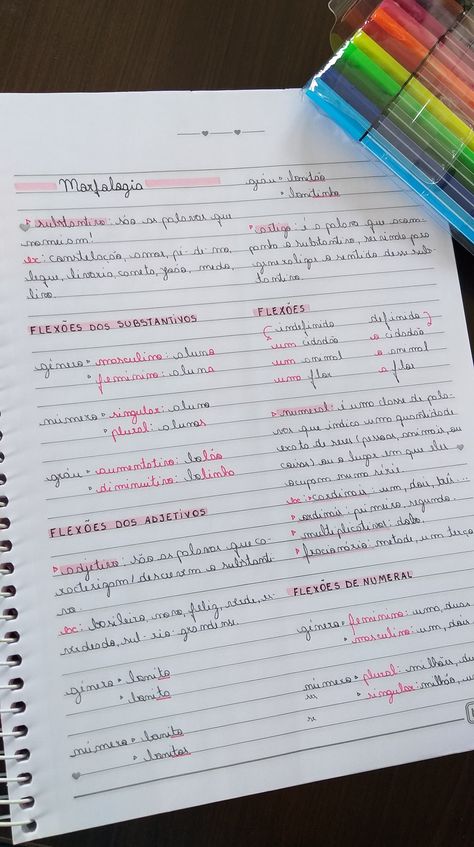 Morfologia
▷ substantivo: são as palavras que
nomeiam!
ex: constelação, amor, pé-de-mo
leque, livraria, caneta, João, medo,
livro.
FLEXÕES DOS SUBSTANTIVOS
gênero ▫ masculino: aluno
▫ feminino: aluna
número ▫ singular: aluno
▫ plural: alunos
gráu ▫ aumentativo: bolão
▫ diminuitivo: bolinho
FLEXÕES DOS ADJETIVOS
▷ adjetivo: são as palavras que ca-
racterizam/descrevem o substanti
vo.
ex: brasileiro, novo, feliz, verde, es-
verdeado, sul-rio-grandense.
gênero ▫ bonito
▫ bonita
número ▫ bonito
▫ bonitos
gráu ▫ bonitão
▫ bonitinho
▷ artigo: é a palavra que acom-
panha o substantivo, definindo ou
generaliza o sentido desse subs-
tantivo.
FLEXÕES
indefinido definido
um cidadão o cidadão
um animal o animal
uma flor a flor
▷ numeral: é uma classe de pala-
vras que indica uma quantidade
exata de seres (pessoas, animais, ou
coisas) ou o lugar em que eles
ocupam numa série.
ex: ▫ cardinais: um, dois, três...
▫ ordinais: primeiro, segundo.
▫ multiplicativos: dobro.
▫ fracionário: metade, um terço
FLEXÕES DE NUMERAL
gênero ▫ feminino: uma, duas
▫ masculino: um, dois
número ▫ plural: milhões,
▫ singular: milhão,